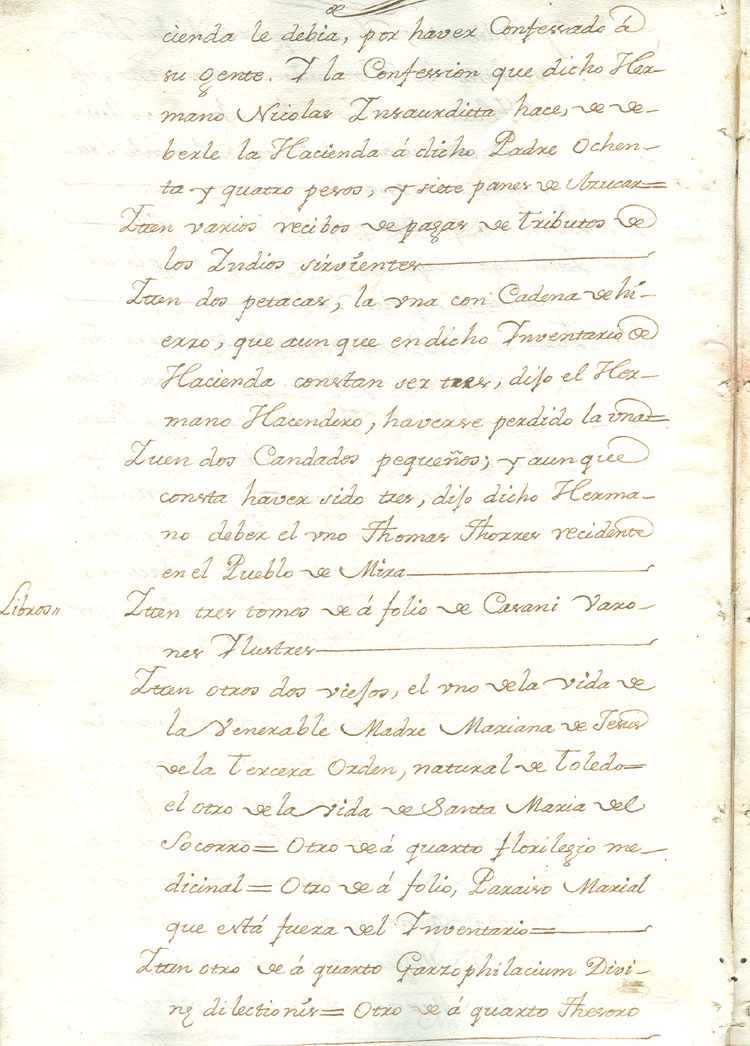 de
cienda le debia, por haver Confessado á
su gente. Y la Confession que dicho Her-
mano Nicolas Insaurdieta hace, de de-
berle la Hacienda á dicho Padre Ochen-
ta y quatro pesos, y siete panes de Azucar=
Itten varios recibos de pagas de Tributos de
los Indios sirvientes
Itten dos petacas, la vna con Cadena de hi-
erro, que aunque en dicho Inventario de
Hacienda constan ser tres, dijo el Her-
mano Hacendero, haverse perdido la vna=
Itten dos Candados pequeños; y aunque
consta haver sido tres, dijo dicho Herma-
no deber el vno Thomas Thorres recidente
en el Pueblo de Mira
Libros〃
Itten tres tomos de á folio de Casani Varo-
nes Ylustres
Itten otros dos viejos, el vno de la vida de
la Venerable Madre Mariana de Jesus
de la Tercera Orden, natural de Toledo=
el otro de la vida de Santa Maria del
Socorro= Otro de á quarto florilegio me-
dicinal= Otro de á folio, Paraiso Marial
que está fuera del Inventario=
Itten otro de á quarto Garzophilacium Divi-
nę dilectionis= Otro de á quarto Thesoro